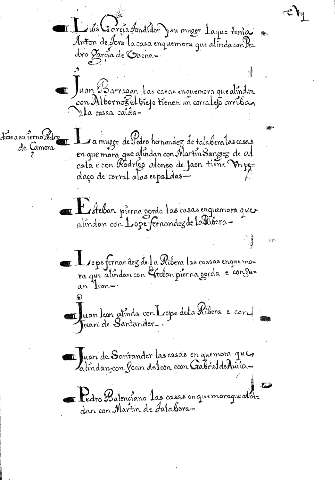 Luis Garcia fundidor y su muger la que tenia
Anton de Toro la casa en que mora que alinda con Pe
dro Garcia de
Juan Barragan las casas en que mora que alindan
con Albornoz el biejo tienen un corralejo arriba
y la casa caida
La muger de Pedro hernandez de talabera las casas
en que mora que alindan con Martin Sanchez de al
cala e con Rodrigo alonso de Jaen tiene un pe
daço de corral a las espaldas
de Camora
Esteban pierna gorda las casas en que mora que
alindan con Lope fernandez de la Ribera
Lope fernandez de la Ribera las cassas en que mo
ra que alindan con Esteban pierna gorda e con Ju
an Leon
Juan Leon alinda con Lope de la Ribera e con
Juan de Santander
Juan de Santander las casas en que mora que
alindan con Juan de Leon e con Gabriel de Avila
Pedro Palenciano las casas en que mora que alin
dan con Martin de talabera